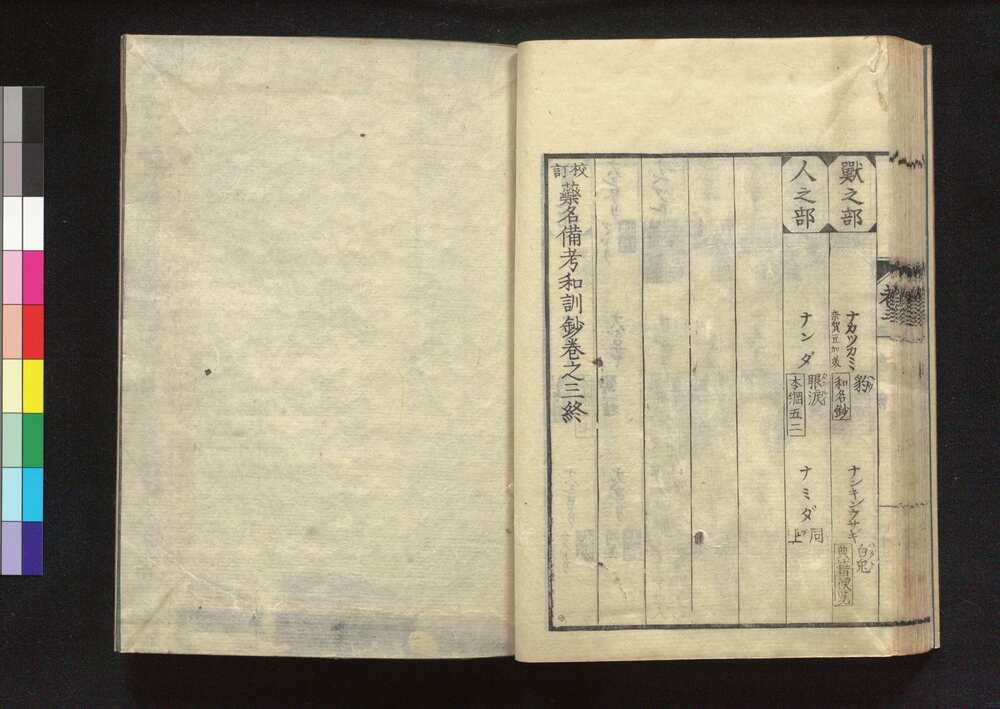 獸之部
ナカツカミ
豹
和名鈔
ナンキンウサギ
白兎
人之部
ナンダ
眼涙
本綱五二
ナミダ
同上
校訂藥名備考和訓鈔卷之三終